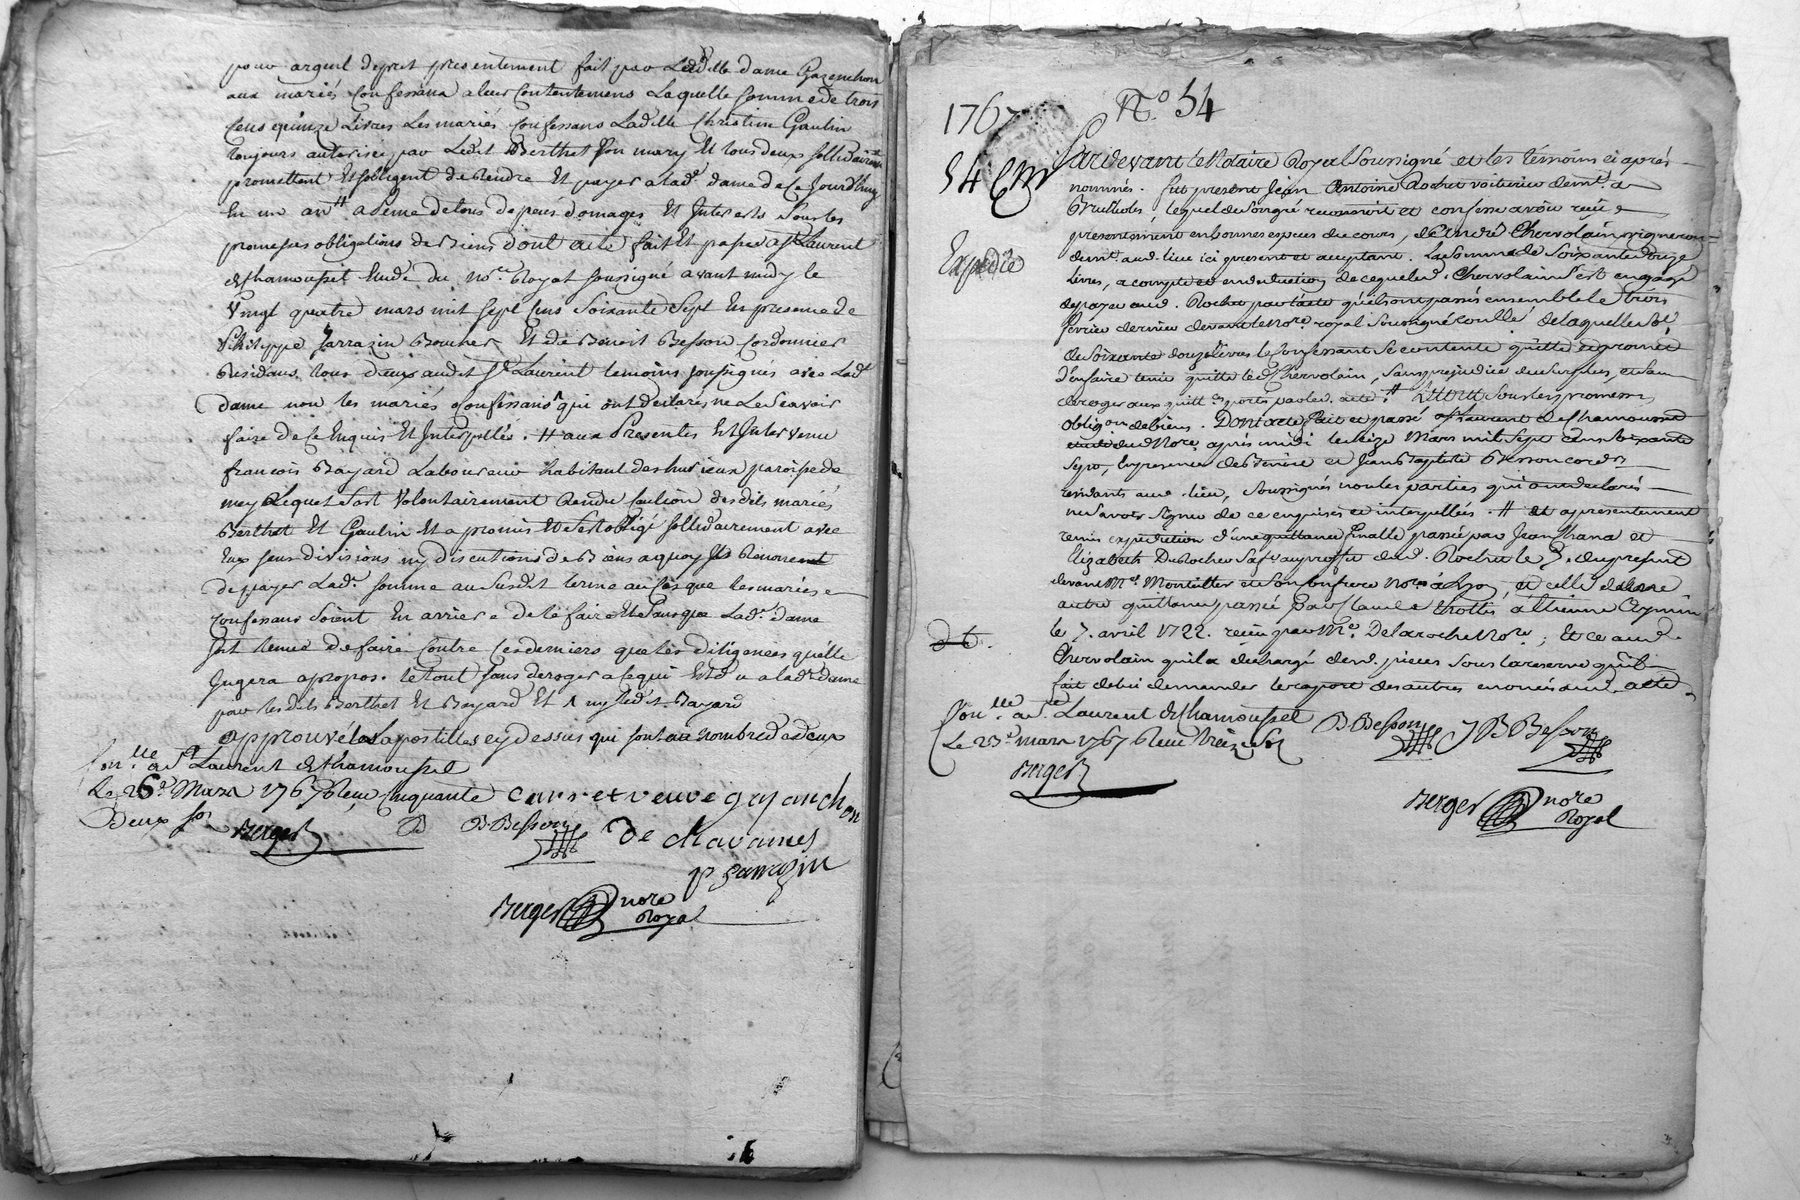 pour argent depret presentement fait par Ladte dame Gayenchon
aux mariés Confessans a leur Contentement Laquelle somme de trois
Cens quinze Livres Les mariés Confessans Ladtte Christine Gaulin
toujours autorisée par Ledit Berthet son mary Et tous deux sollidairement
promettent Et sobligent de Rendre Et payer a Lade dame de Ce Jourd'huy
En un an # a peine de tous depens domages Et Interests sous les
promesses obligations de Biens dont acte fait Et passé a St Laurent
de Chamousset Etude du Nore Royal soussigné avant midy le
Vingt quatre mars mil sept Cens soixante sept En presence de
Philippe Sarrazin Boucher Et de Benoit Besson Cordonnier
Residans tous deux audit St Laurent temoins soussignés avec Lade
dame non les mariés Confessans qui ont declarés ne Le Scavoir
faire de Ce Enquis Et Interpellés. # aux Presentes Est Intervenu
francois Bayard Laboureur habitant des hurieux paroisse de
mey Lequel s'est Volontairement Rendu Caution desdits mariés
Berthet Et Gaulin Et a promis Et s'est obligé sollidairement avec
Eux sans divisions ny discutions de Biens a quoy Il Renonce
de payer Lade. somme au susdit terme au Cas que les mariés
Confessans soient En arriere de le faire Et sans que Lade. dame
soit tenue de faire Contre Ces derniers que les diligences qu'elle
Jugera apropos. le tout sans deroger a ce qui Est du a lade dame
par lesdits Berthet Et Bayard Et ny ledit Bayard
approuvé les apostilles cy dessus qui sont au nombre de deux
Con.lle a St Laurent de Chamousset
Le 26e Mars 1767 Reçu Cinquante
Deux sols
Berger
B Besson
Cars et veuve gayanchon
De chavanes
P Sarrazin
Berger nore
Royal
1767
N.o 54
54 Cm
Expedié
Pardevant le Notaire Royal Soussigné et les témoins ci après
nommés. fut present Jean Antoine Rochet voiturier demt. a
Brussioles, lequel de son gré reconnoit et confesse avoir reçu
presentement en bonnes especes du cours, de André Chervolain vigneron
demt. aud. lieu ici present et acceptant. La somme de soixante douze
livres, a compte et en deduction de ce que led. Chervolain s'est engagé
de payer aud. Rochet par l'acte qu'ils ont passés ensemble le trois
fevrier dernier devant le Nore. royal soussigné Conllé de laquelle so.
de soixante douze livres le Confessant se contente quitte et promet
d'en faire tenir quitte led. Chervolain, sans prejudice du surplus, et sans
deroger aux quittces portés par led. acte # Le tout sous les promesses
obligon de biens. Dont acte fait et passé a St Laurent de Chamousset
etude du Nore. après midi le seize Mars mil sept cens soixante
sept, En presence de Bénoit et Jean Baptiste Besson cordrs
residants aud. lieu, soussignés non les parties qui ont declarés
ne savoir signer de ce enquises et interpellées. # et a presentement
remis expedition d'une quittance finalle passée par Jean Thana et
Elizabeth Durochet Sa fe. au proffit dud. Rochet le 3. du present
devant Me. Montellier et son confrere Nores. à Lyon, et celle d'une
autre quittance passée par Claude Thollis à Etienne Aymin
le 7. avril 1722. reçue par Me. Delaroche Nore.; Et ce aud.
Chervolain qui l'a dechargé desd. pieces sous la reserve qu'il
fait de lui demander le raport des autres enoncés aud. acte
Con.lle a St. Laurent de Chamousset
Le 23e mars 1767 Reçu treize sols
Berger
B Besson
J B Besson
Berger nore
Royal